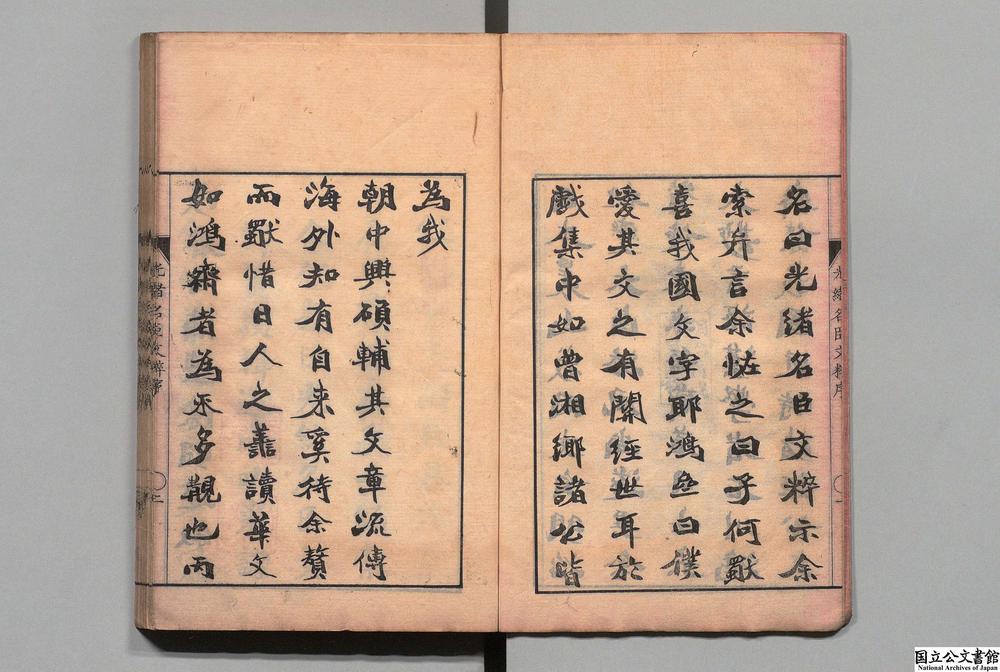 名曰光緒名臣文粹示余
索弁言余怪之曰子何獸
喜我國文字耶鴻
曰僕
愛其文之有關經世耳於
戲集中如曾湘鄉諸公皆
為我
朝中興碩輔其文章流傳
海外知有自来奚待余贅
而獸惜日人之善讀華文
如鴻齋者為不多覯也丙
光緒名臣文粹序
国立公文書館
National Archives of Japan